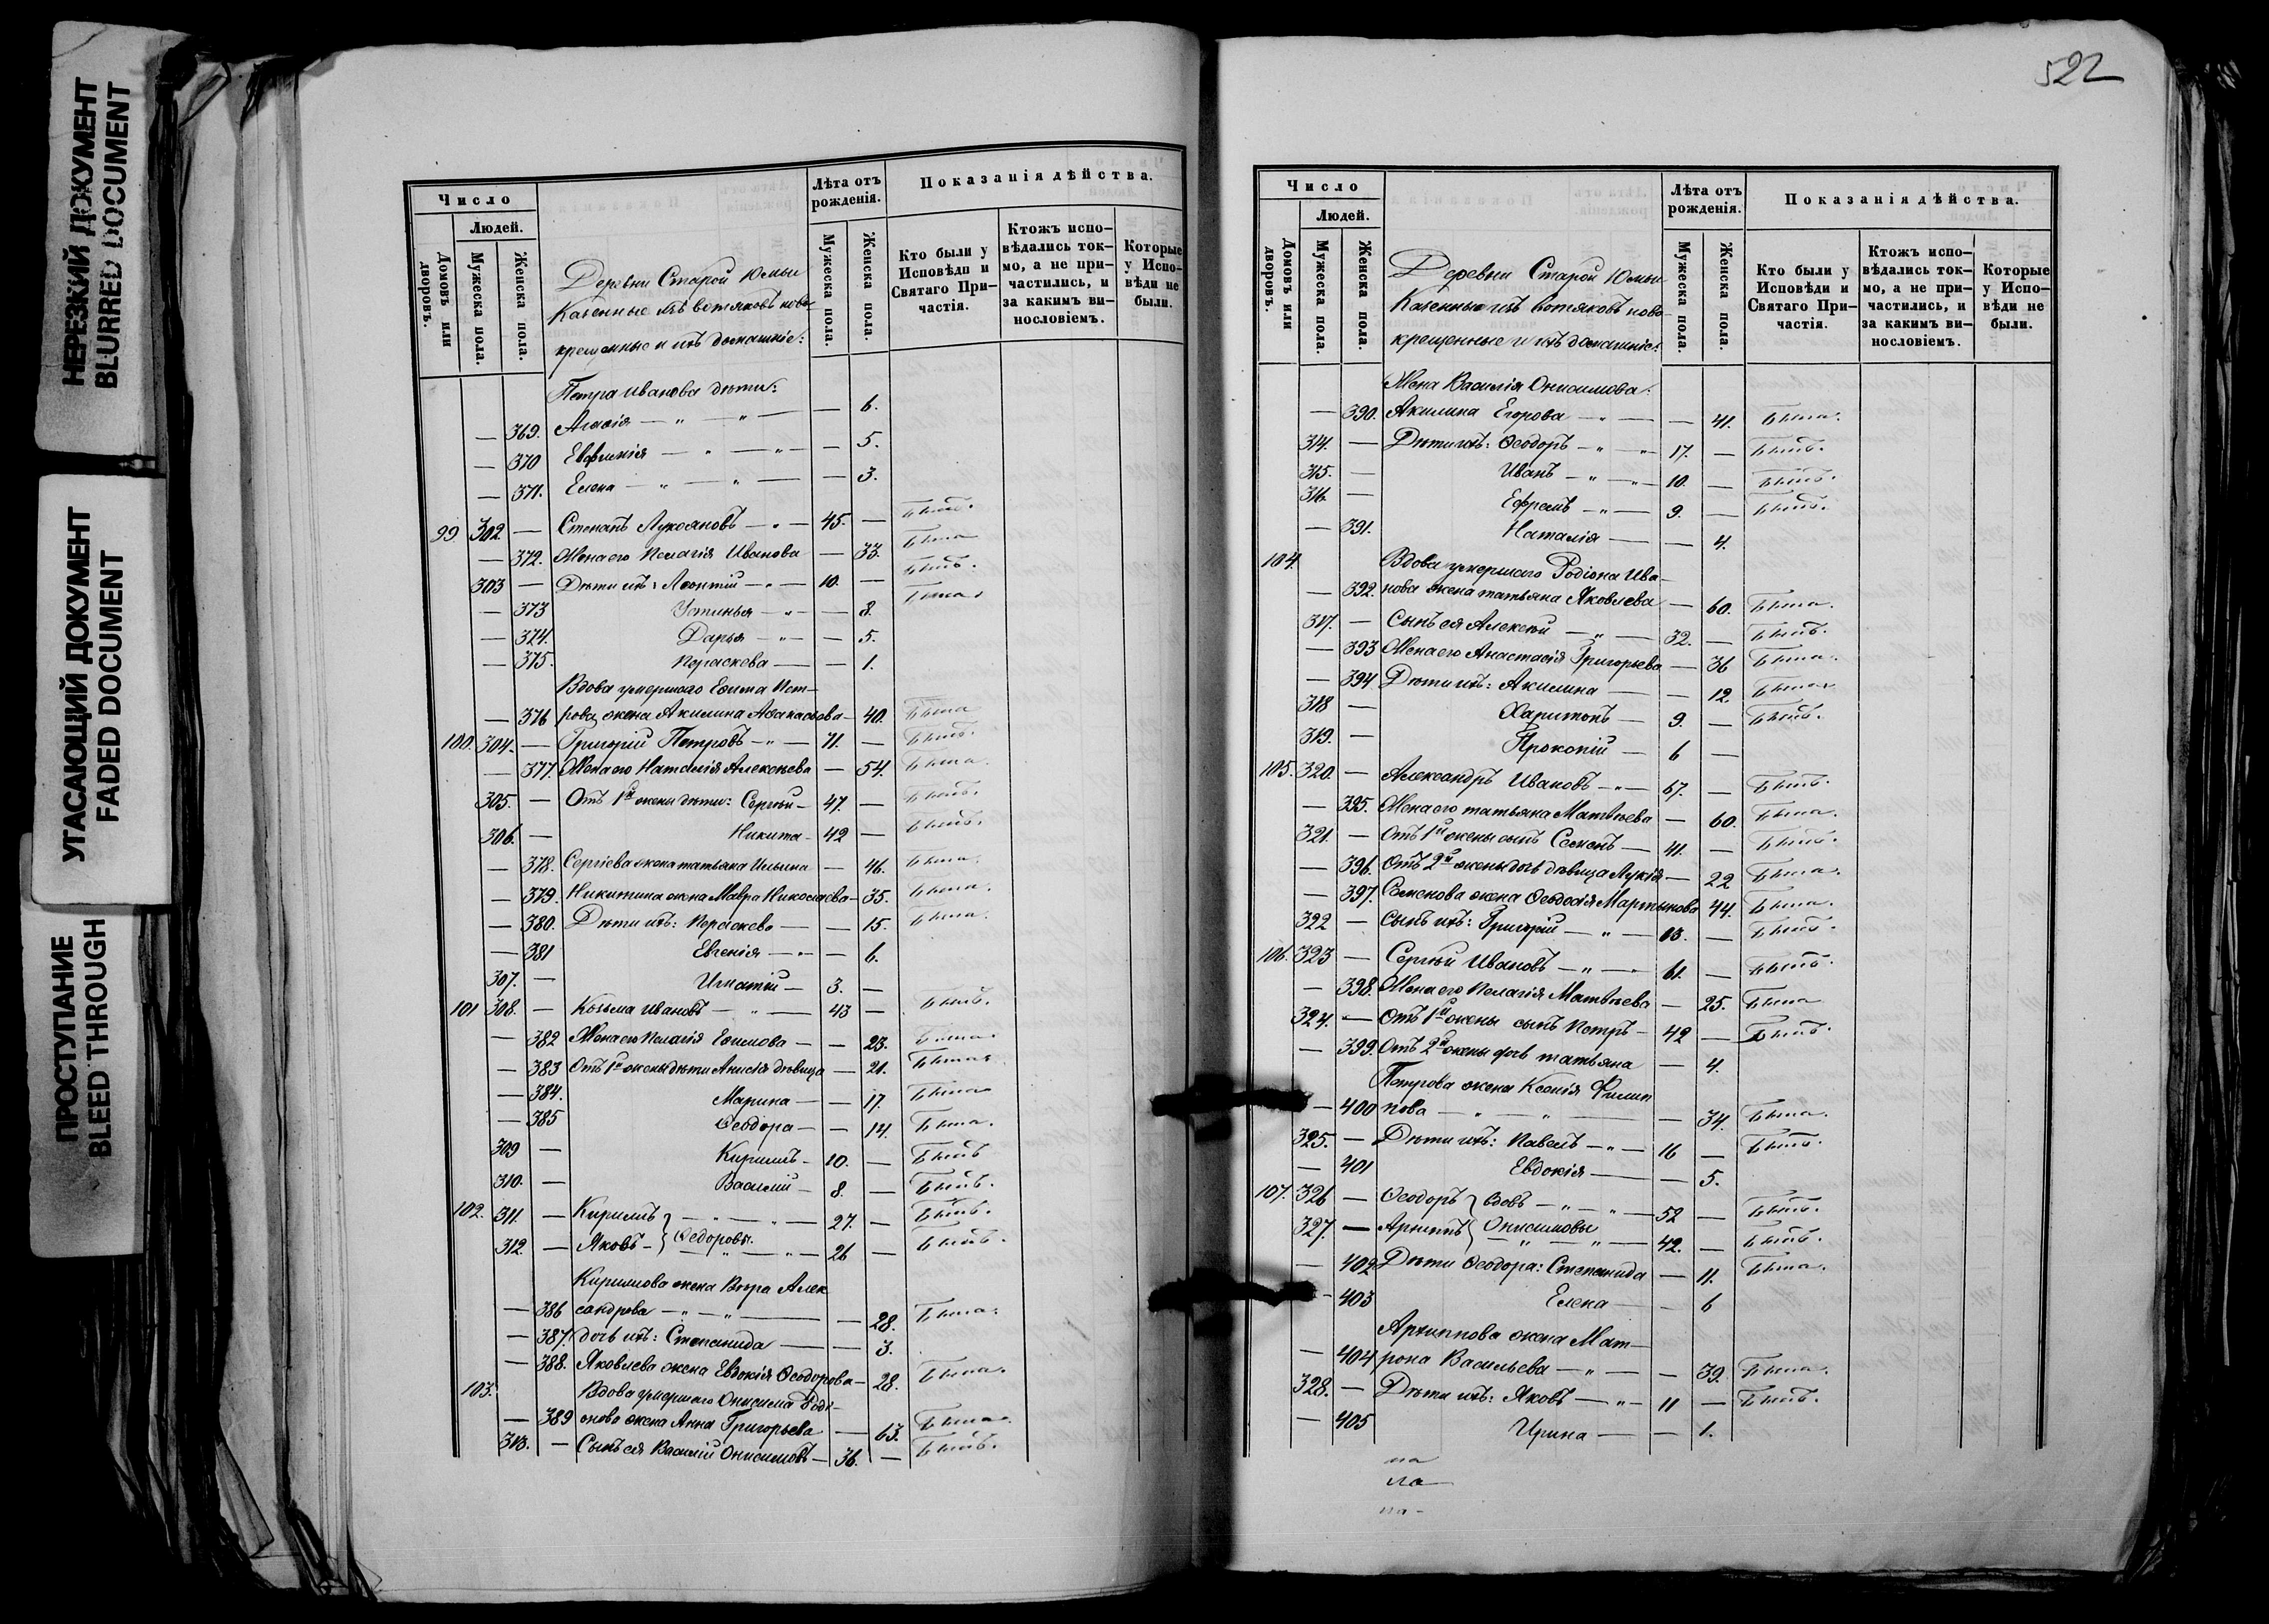 522
НЕРЕЗКИЙ ДОКУМЕНТ
BLURRED DOCUMENT
УГАСАЮЩИЙ ДОКУМЕНТ
FADED DOCUMENT
ПРОСТУПАНИЕ
BLEED THROUGH
Число
Людей.
Домовъ или дворовъ.
Мужеска пола.
Женска пола.
Деревни Старой Юмьи
Казенные изъ вотяковъ ново-
крещенные и ихъ домашніе:
Лѣта отъ рожденія.
Мужеска пола.
Женска пола.
Показанія дѣйства.
Кто были у Исповѣди и Святаго При-частія.
Ктожъ испо-вѣдались ток-мо, а не при-частились, и за какимъ ви-нословіемъ.
Которые у Испо-вѣди не были.
Петра Иванова дѣти:
— 369. Агафія — " — " — — 6.
— 370 Евфимія — " — " — — 5.
— 371. Елена — " — " — — 3.
99 302 — Степанъ Лукояновъ — " — 45. — Былъ.
— 372. Жена его Пелагія Иванова — 33. Была
303 — Дѣти ихъ: Леонтій — " — 10. — Былъ.
— 373 Устинья — " — — 8. Была
— 374. Дарья — " — — 5.
— 375. Параскева — — 1.
Вдова умершаго Ефима Пет-
— 376 рова жена Акилина Афанасьева — 40. Была
100. 304. — Григорій Петровъ — " — 71. — Былъ.
— 377 Жена его Наталія Алексѣева — 54. Была.
305. — Отъ 1й жены дѣти: Сергѣй — 47. — Былъ.
306. — Никита — 42 — Былъ.
— 378. Сергіева жена Татьяна Ильина — 46. Была.
— 379. Никитина жена Мавра Николаева — 35. Была.
— 380. Дѣти ихъ: Параскева — — 15. Была.
— 381 Евгенія — " — — 6.
307. — Игнатій — 3. —
101 308. — Козьма Ивановъ — " — 43 — Былъ.
— 382 Жена его Пелагія Ефимова — — 23. Была.
— 383 Отъ 1й жены дѣти Анисія дѣвица — 21. Была
— 384. Марина — — 17. Была
— 385 Ѳеодора — — 14. Была.
309 — Кириллъ — 10. — Былъ
310. — Василій — 8. — Былъ.
102. 311. — Кириллъ } — " — " — 27. — Былъ.
312 — Яковъ — } Ѳедоровы. — " — " — 26 — Былъ.
Кириллова жена Вѣра Алек
— 386 сандрова — " — " — — 28. Была.
— 387. дочь ихъ: Степанида — — 3.
— 388. Яковлева жена Евдокія Ѳеодорова — 28. Была.
103. Вдова умершаго Онисима Роді-
— 389 онова жена Анна Григорьева — 63. Была.
313. — Сынъ ея Василій Онисимовъ — 36. — Былъ.
Число
Людей.
Домовъ или дворовъ.
Мужеска пола.
Женска пола.
Деревни Старой Юмьи
Казенные изъ вотяковъ ново-
крещенные и ихъ домашніе:
Лѣта отъ рожденія.
Мужеска пола.
Женска пола.
Показанія дѣйства.
Кто были у Исповѣди и Святаго При-частія.
Ктожъ испо-вѣдались ток-мо, а не при-частились, и за какимъ ви-нословіемъ.
Которые у Испо-вѣди не были.
Жена Василія Онисимова:
— 390. Акилина Егорова — " — — 41. Была.
314. — Дѣти ихъ: Ѳеодоръ — " — " 17. — Былъ.
315. — Иванъ — " — " 10. — Былъ.
316. — Ефремъ — " — 9. — Былъ.
— 391. Наталія — — 4.
104. Вдова умершаго Родіона Ива-
— 392. нова жена Татьяна Яковлева — 60. Была.
317. — Сынъ ея Алексѣй — " — 32. — Былъ.
— 393 Жена его Анастасія Григорьева — 36 Была.
— 394 Дѣти ихъ: Акилина — — 12 Была
318 — Харитонъ — 9. — Былъ.
319. — Прокопій — 6 —
105. 320. — Александръ Ивановъ — " — 67. — Былъ.
— 395. Жена его Татьяна Матвѣева — 60. Была.
321. — Отъ 1й жены сынъ Семенъ — 41. — Былъ.
— 396. Отъ 2й жены дочь дѣвица Лукія — 22 Была.
— 397. Семенова жена Ѳеодосія Мартынова 44. Была.
322 — Сынъ ихъ: Григорій — " — 13. — Былъ.
106. 323 — Сергѣй Ивановъ — " — 61. — Былъ.
— 398. Жена его Пелагія Матвѣева — 25. Была
324. — Отъ 1й жены сынъ Петръ — 42 — Былъ.
— 399. Отъ 2й жены дочь Татьяна — 4.
Петрова жена Ксенія Филип
— 400 пова — " — " — — 34. Была.
325. — Дѣти ихъ: Павелъ — " — 16 — Былъ.
— 401 Евдокія — — 5.
107. 326 — Ѳеодоръ } вдовъ — " — " — 52 — Былъ.
327. — Архипъ } Онисимовы — " — " — 42. — Былъ.
— 402 Дѣти Ѳеодора: Степанида — 11. Была.
— 403 Елена — — 6
Архиппова жена Мат-
— 404 рона Васильева — " — — 39. Была.
328. — Дѣти ихъ: Яковъ — " — 11 — Былъ.
— 405 Ирина — — 1.
на
ла
на